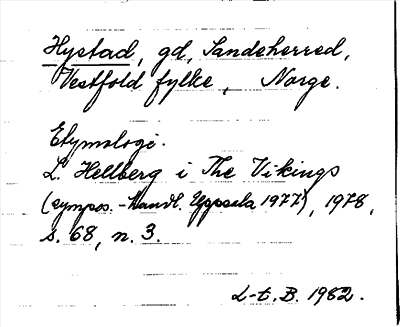 Hystad, gd, Sandeherred,
Vestfold fylke, Norge.
Etymologi.
L. Hellberg i The Vikings
(sympos.-Handl. Uppsala 1977), 1978,
s. 68, n. 3.
L-t. B. 1982.